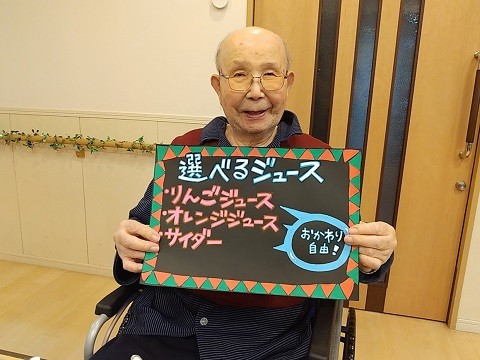 選べるジュース
・りんごジュース
・オレンジジュース
・サイダー
おかわり
自由!